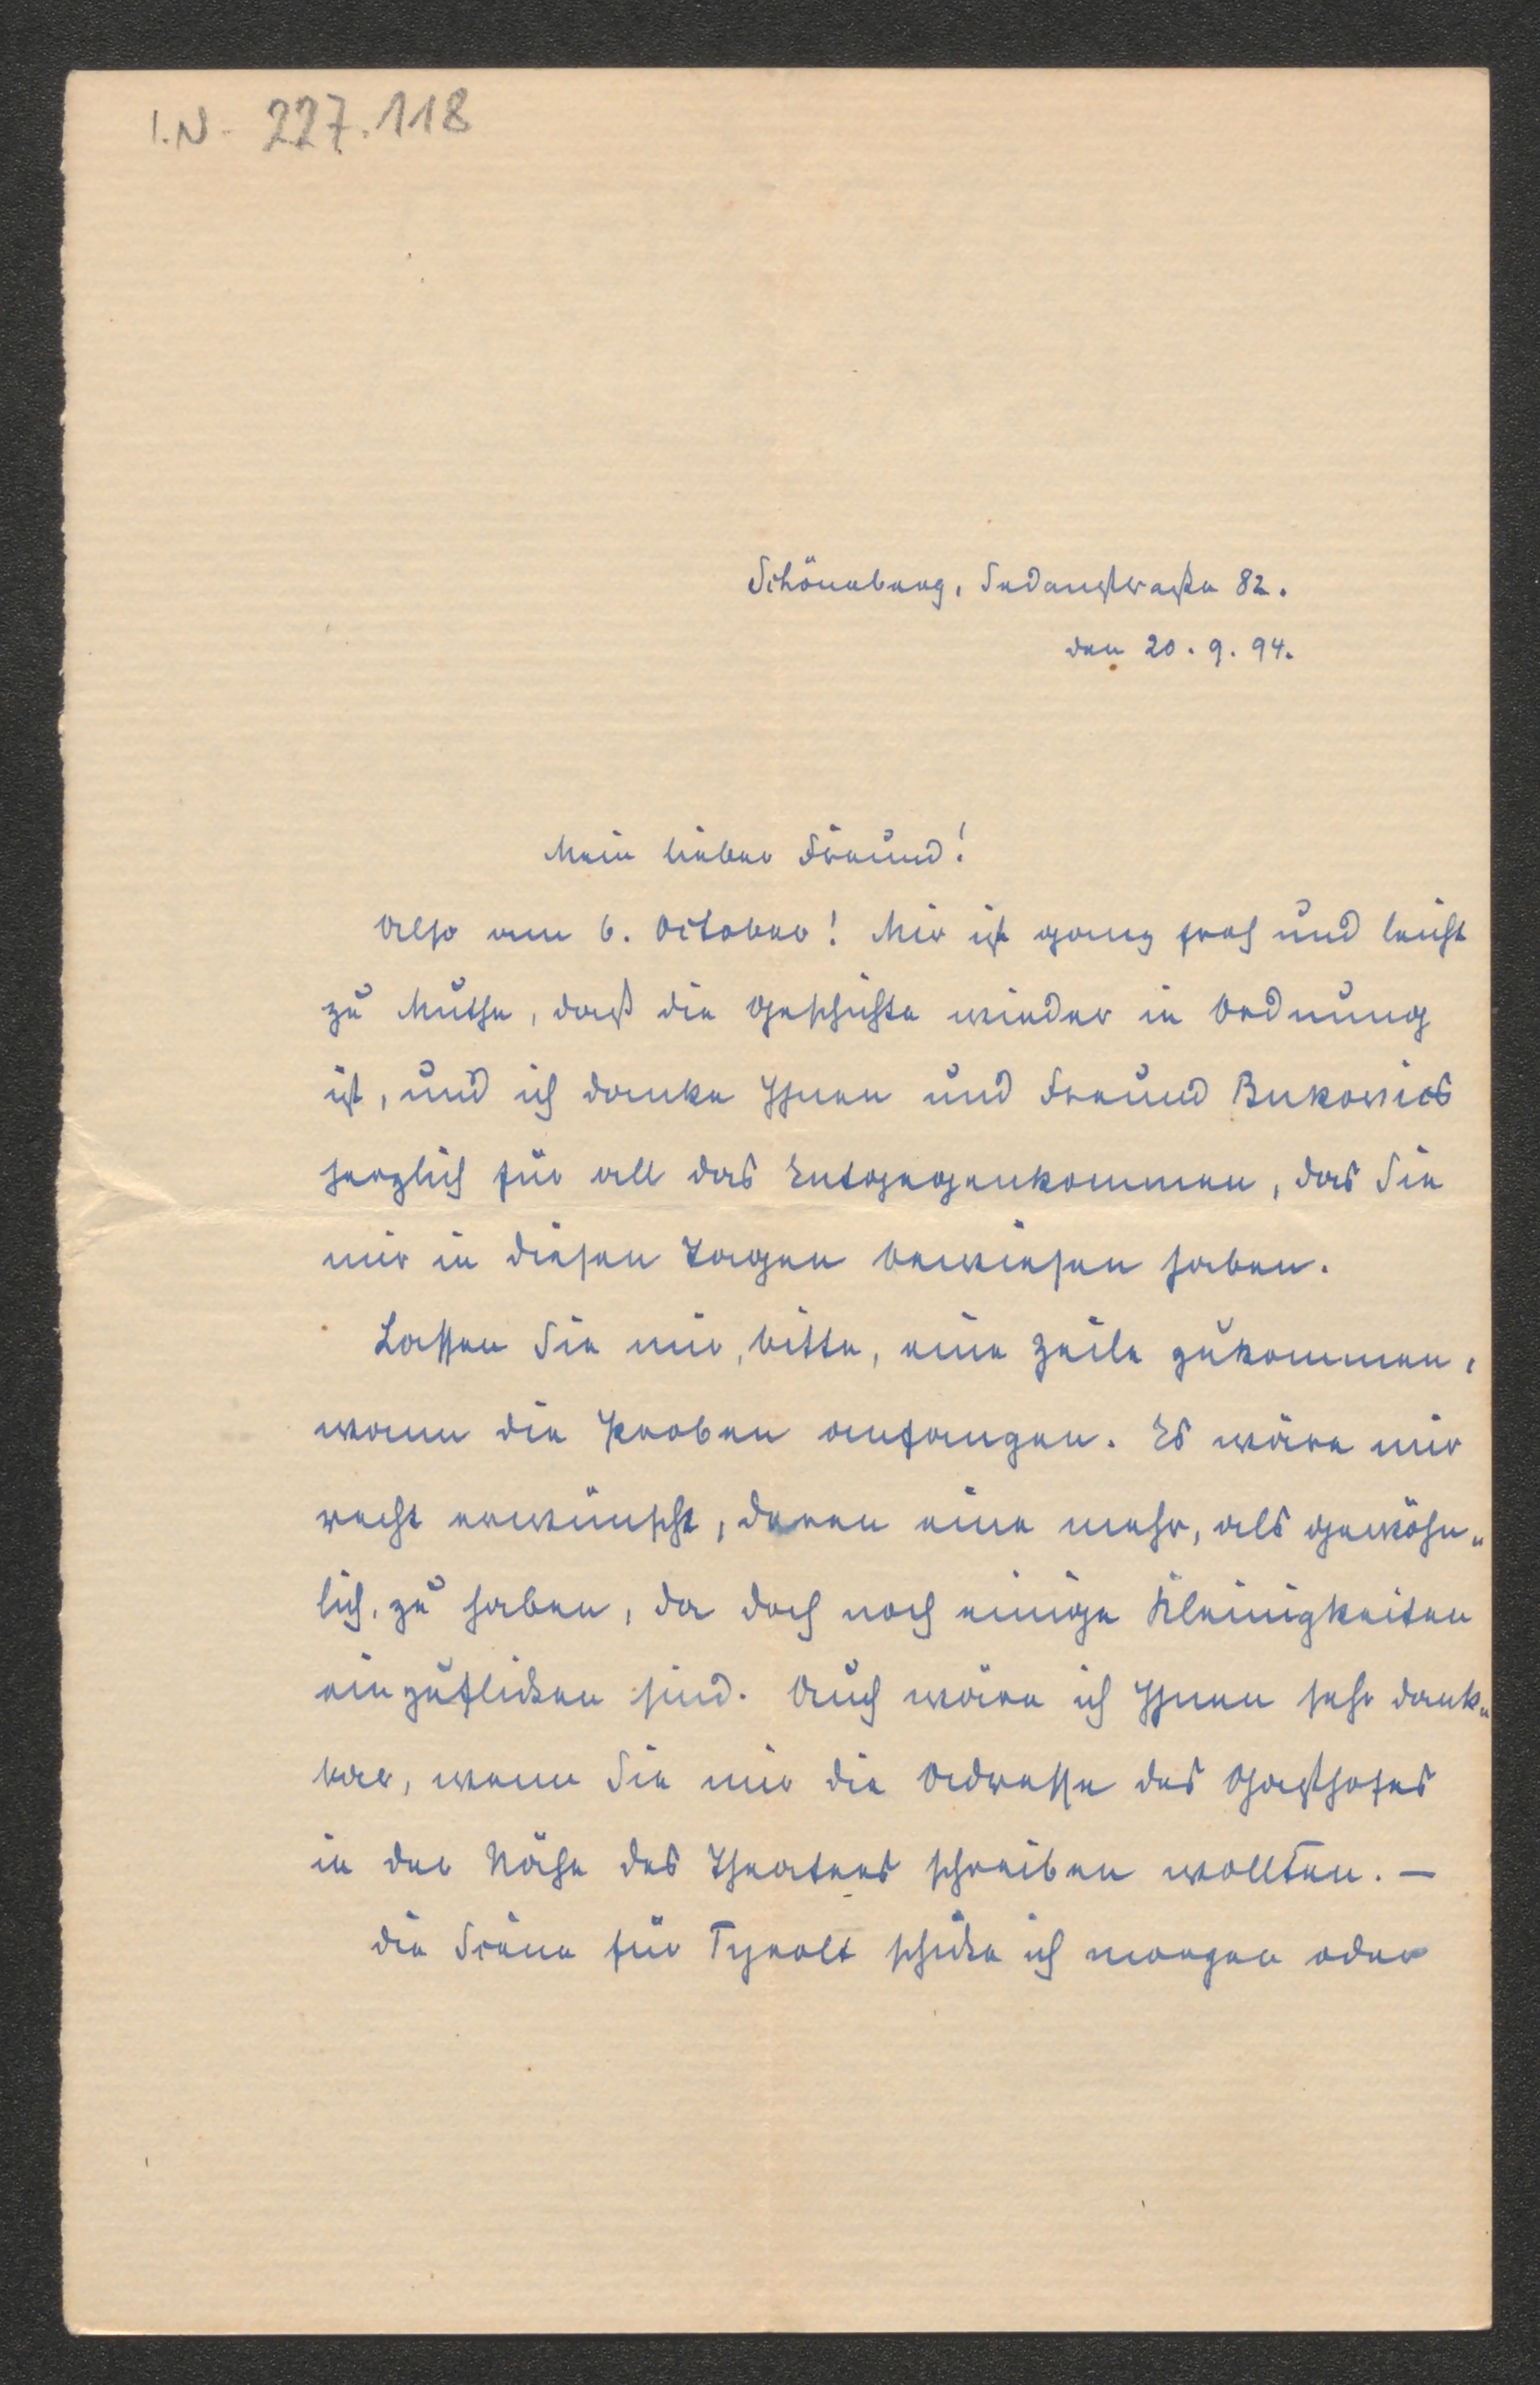 I.N. 227.118
Schöneberg, Sedanstraße 82.
den 20. 9. 94.
Mein lieber Freund!
Also am 6. October! Mir ist ganz froh und leicht
zu Muthe, daß die Geschichte wieder in Ordnung
ist, und ich danke Ihnen und Freund Bukovics
herzlich für all das Entgegenkommen, das Sie
mir in diesen Tagen bewiesen haben.
Lassen Sie mir, bitte, eine Zeile zukommen,
wann die Proben anfangen. Es wäre mir
recht erwünscht, deren eine mehr, als gewöhn„
lich, zu haben, da doch noch einige Kleinigkeiten
einzuflicken sind. Auch wäre ich Ihnen sehr dank„
bar, wenn Sie mir die Adresse des Gasthofes
in der Nähe des Theaters schreiben wollten. —
Die Scene für Tyrolt schicke ich morgen oder